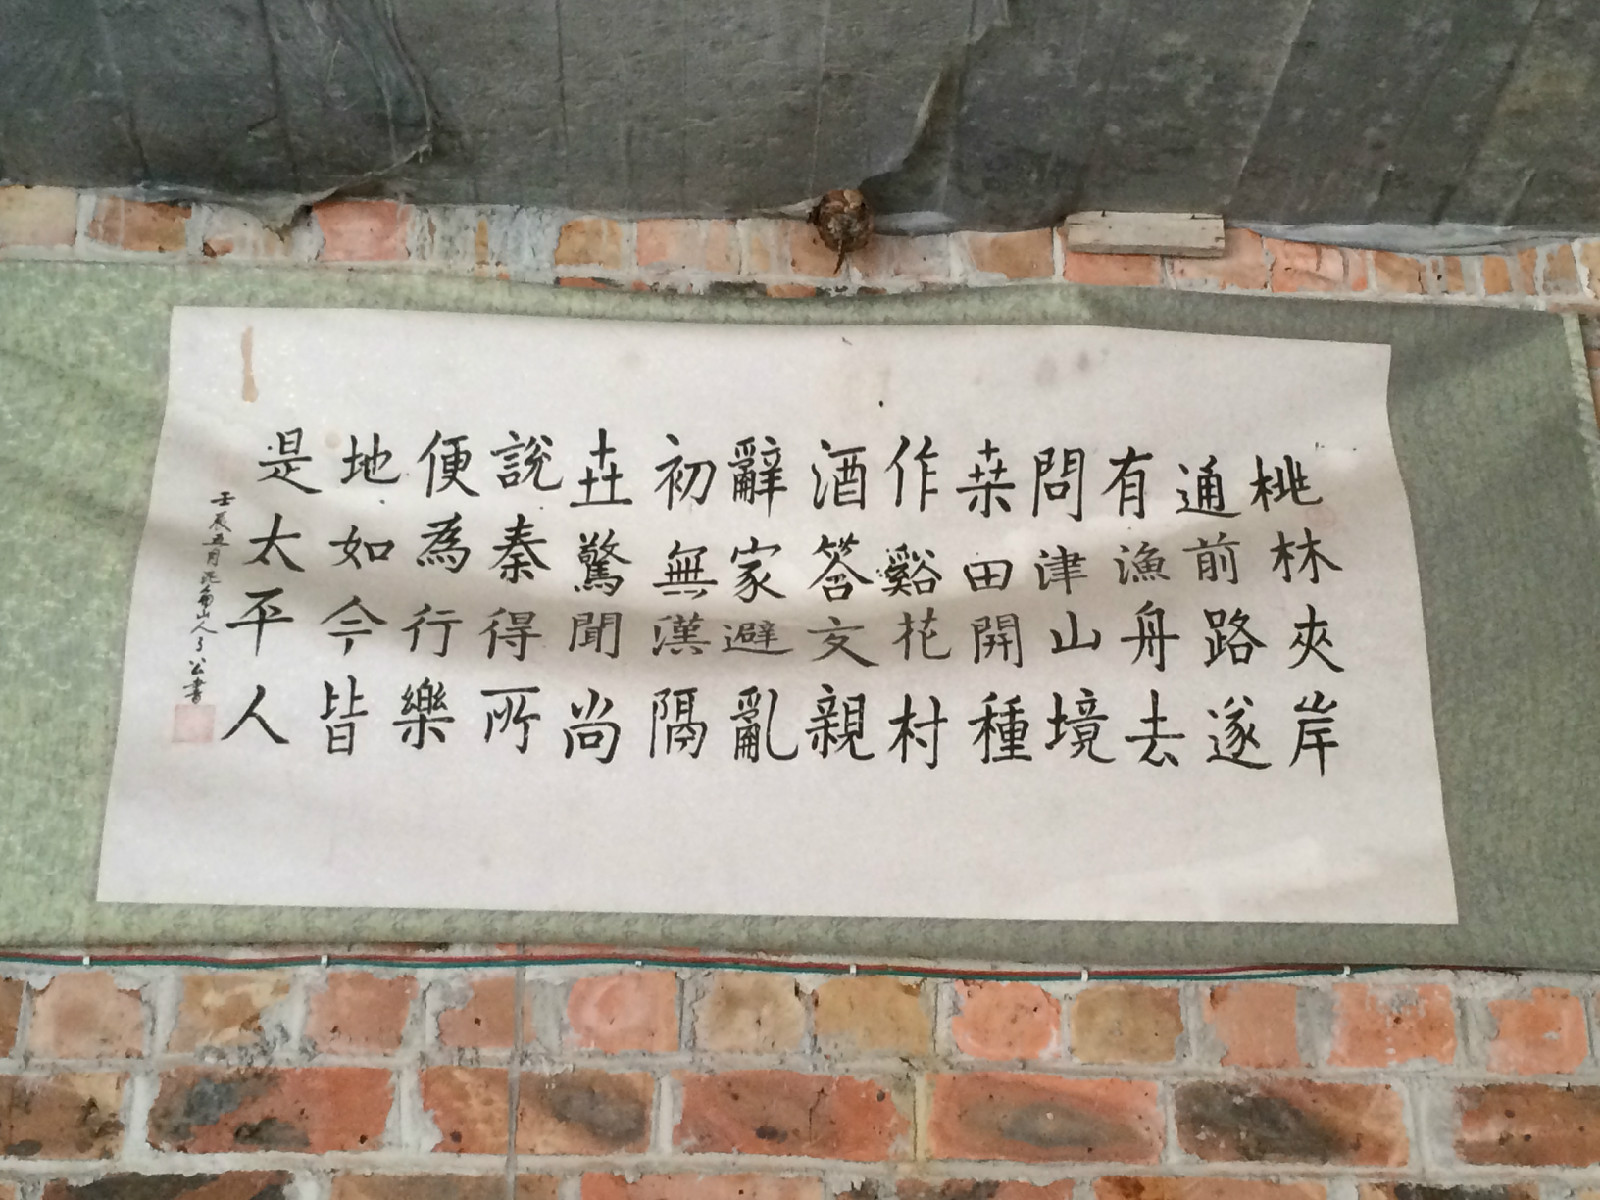 桃林夾岸
通前路遂
有漁舟去
問津山境
桒田開種
作谿花村
酒答交親
辭家避亂
初無漢隔
卋驚聞尚
說秦得所
便為行樂
地如今皆
是太平人
壬辰五月山人了公書